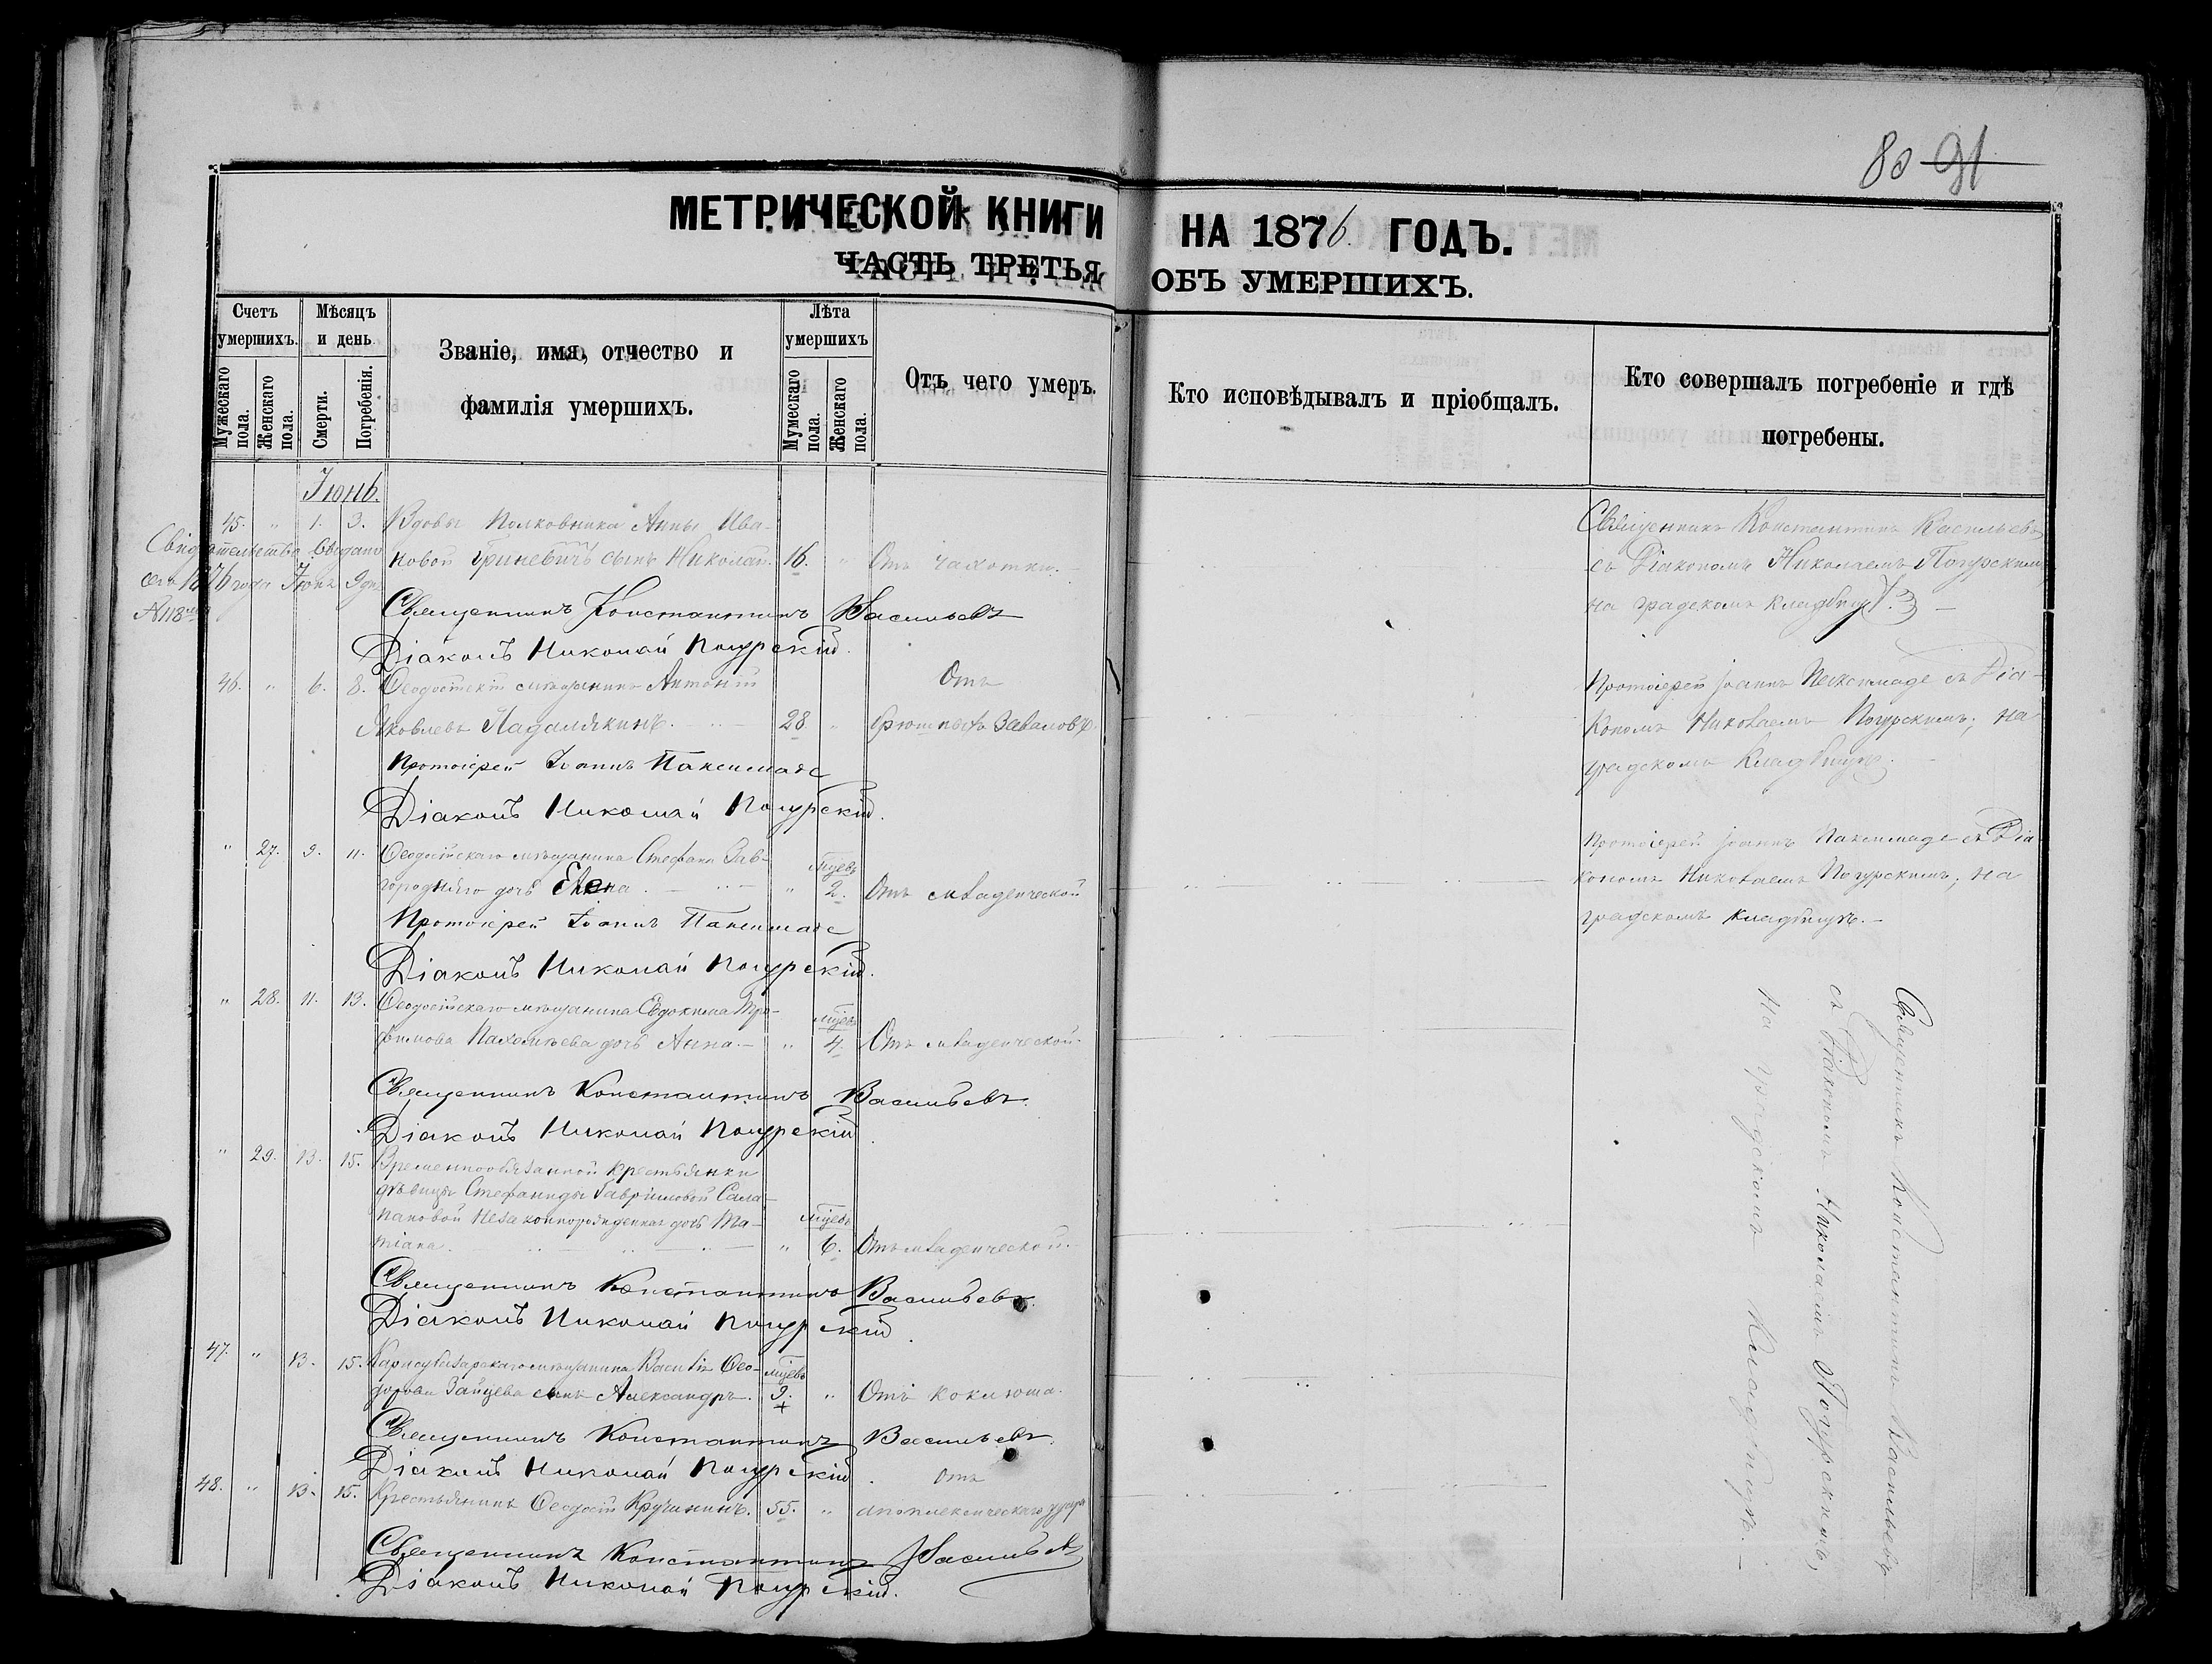 80 91
МЕТРИЧЕСКОЙ КНИГИ НА 1876 ГОДЪ.
ЧАСТЬ ТРЕТЬЯ ОБЪ УМЕРШИХЪ.
Счетъ умершихъ.
Мужескаго пола.
Женскаго пола.
Мѣсяцъ и день
Смерти.
Погребенія.
Званіе, имя, отчество и
фамилія умершихъ.
Лѣта умершихъ
Мужескаго пола.
Женскаго пола.
Отъ чего умеръ.
Кто исповѣдывалъ и пріобщалъ.
Кто совершалъ погребеніе и гдѣ
погребены.
Іюнь.
45. " 1. 3. Вдовы Полковника Анны Ива-
новой Гриневичъ сынъ Николай. 16. " Отъ чахотки.
Свидѣтельство выдано
сего 1876 года Іюня 9 дня
№ 118
Священникъ Константинъ Васильевъ
Діаконъ Николай Погурскій.
Священникъ Константинъ Васильевъ
съ Діакономъ Николаемъ Погурскимъ
на градскомъ кладбищѣ.
46. " 6. 8. Ѳеодосійскій мѣщанинъ Антоній
Яковлевъ Ладалякинъ. 28. " Отъ
брюшныхъ заваловъ.
Протоіерей Іоаннъ Паксимаде
Діаконъ Николай Погурскій.
Протоіерей Іоаннъ Паксимаде съ Діа-
кономъ Николаемъ Погурскимъ; на
градскомъ кладбищѣ.
" 27. 9. 11. Ѳеодосійскаго мѣщанина Стефана Зав-
городняго дочь Елена. " мѣсяцевъ 2. Отъ младенческой
Протоіерей Іоаннъ Паксимаде
Діаконъ Николай Погурскій.
Протоіерей Іоаннъ Паксимаде съ Діа
кономъ Николаемъ Погурскимъ; на
градскомъ кладбищѣ.
" 28. 11. 13. Ѳеодосійскаго мѣщанина Евдокима Тро-
фимова Пахомьева дочь Анна. " мцевъ 4. Отъ младенческой.
Священникъ Константинъ Васильевъ.
Діаконъ Николай Погурскій
" 29. 13. 15. Временнообязанной крестьянки
дѣвицы Стефаниды Гавріиловой Сала-
пановой незаконнорожденная дочь Та-
тіана. " мцевъ 6. Отъ младенческой.
Священникъ Константинъ Васильевъ.
Діаконъ Николай Погурскій.
47. " 13. 15. Карасубазарскаго мѣщанина Василія Ѳео-
дорова Зайцева сынъ Александръ. мцевъ 9. " Отъ коклюша.
Священникъ Константинъ Васильевъ.
Діаконъ Николай Погурскій.
48. " 13. 15. Крестьянинъ Ѳеодосій Кручининъ. 55. " Отъ
апоплексическаго удара
Священникъ Константинъ Васильевъ
Діаконъ Николай Погурскій.
Священникъ Константинъ Васильевъ
съ Діакономъ Николаемъ Погурскимъ,
на градскомъ кладбищѣ.